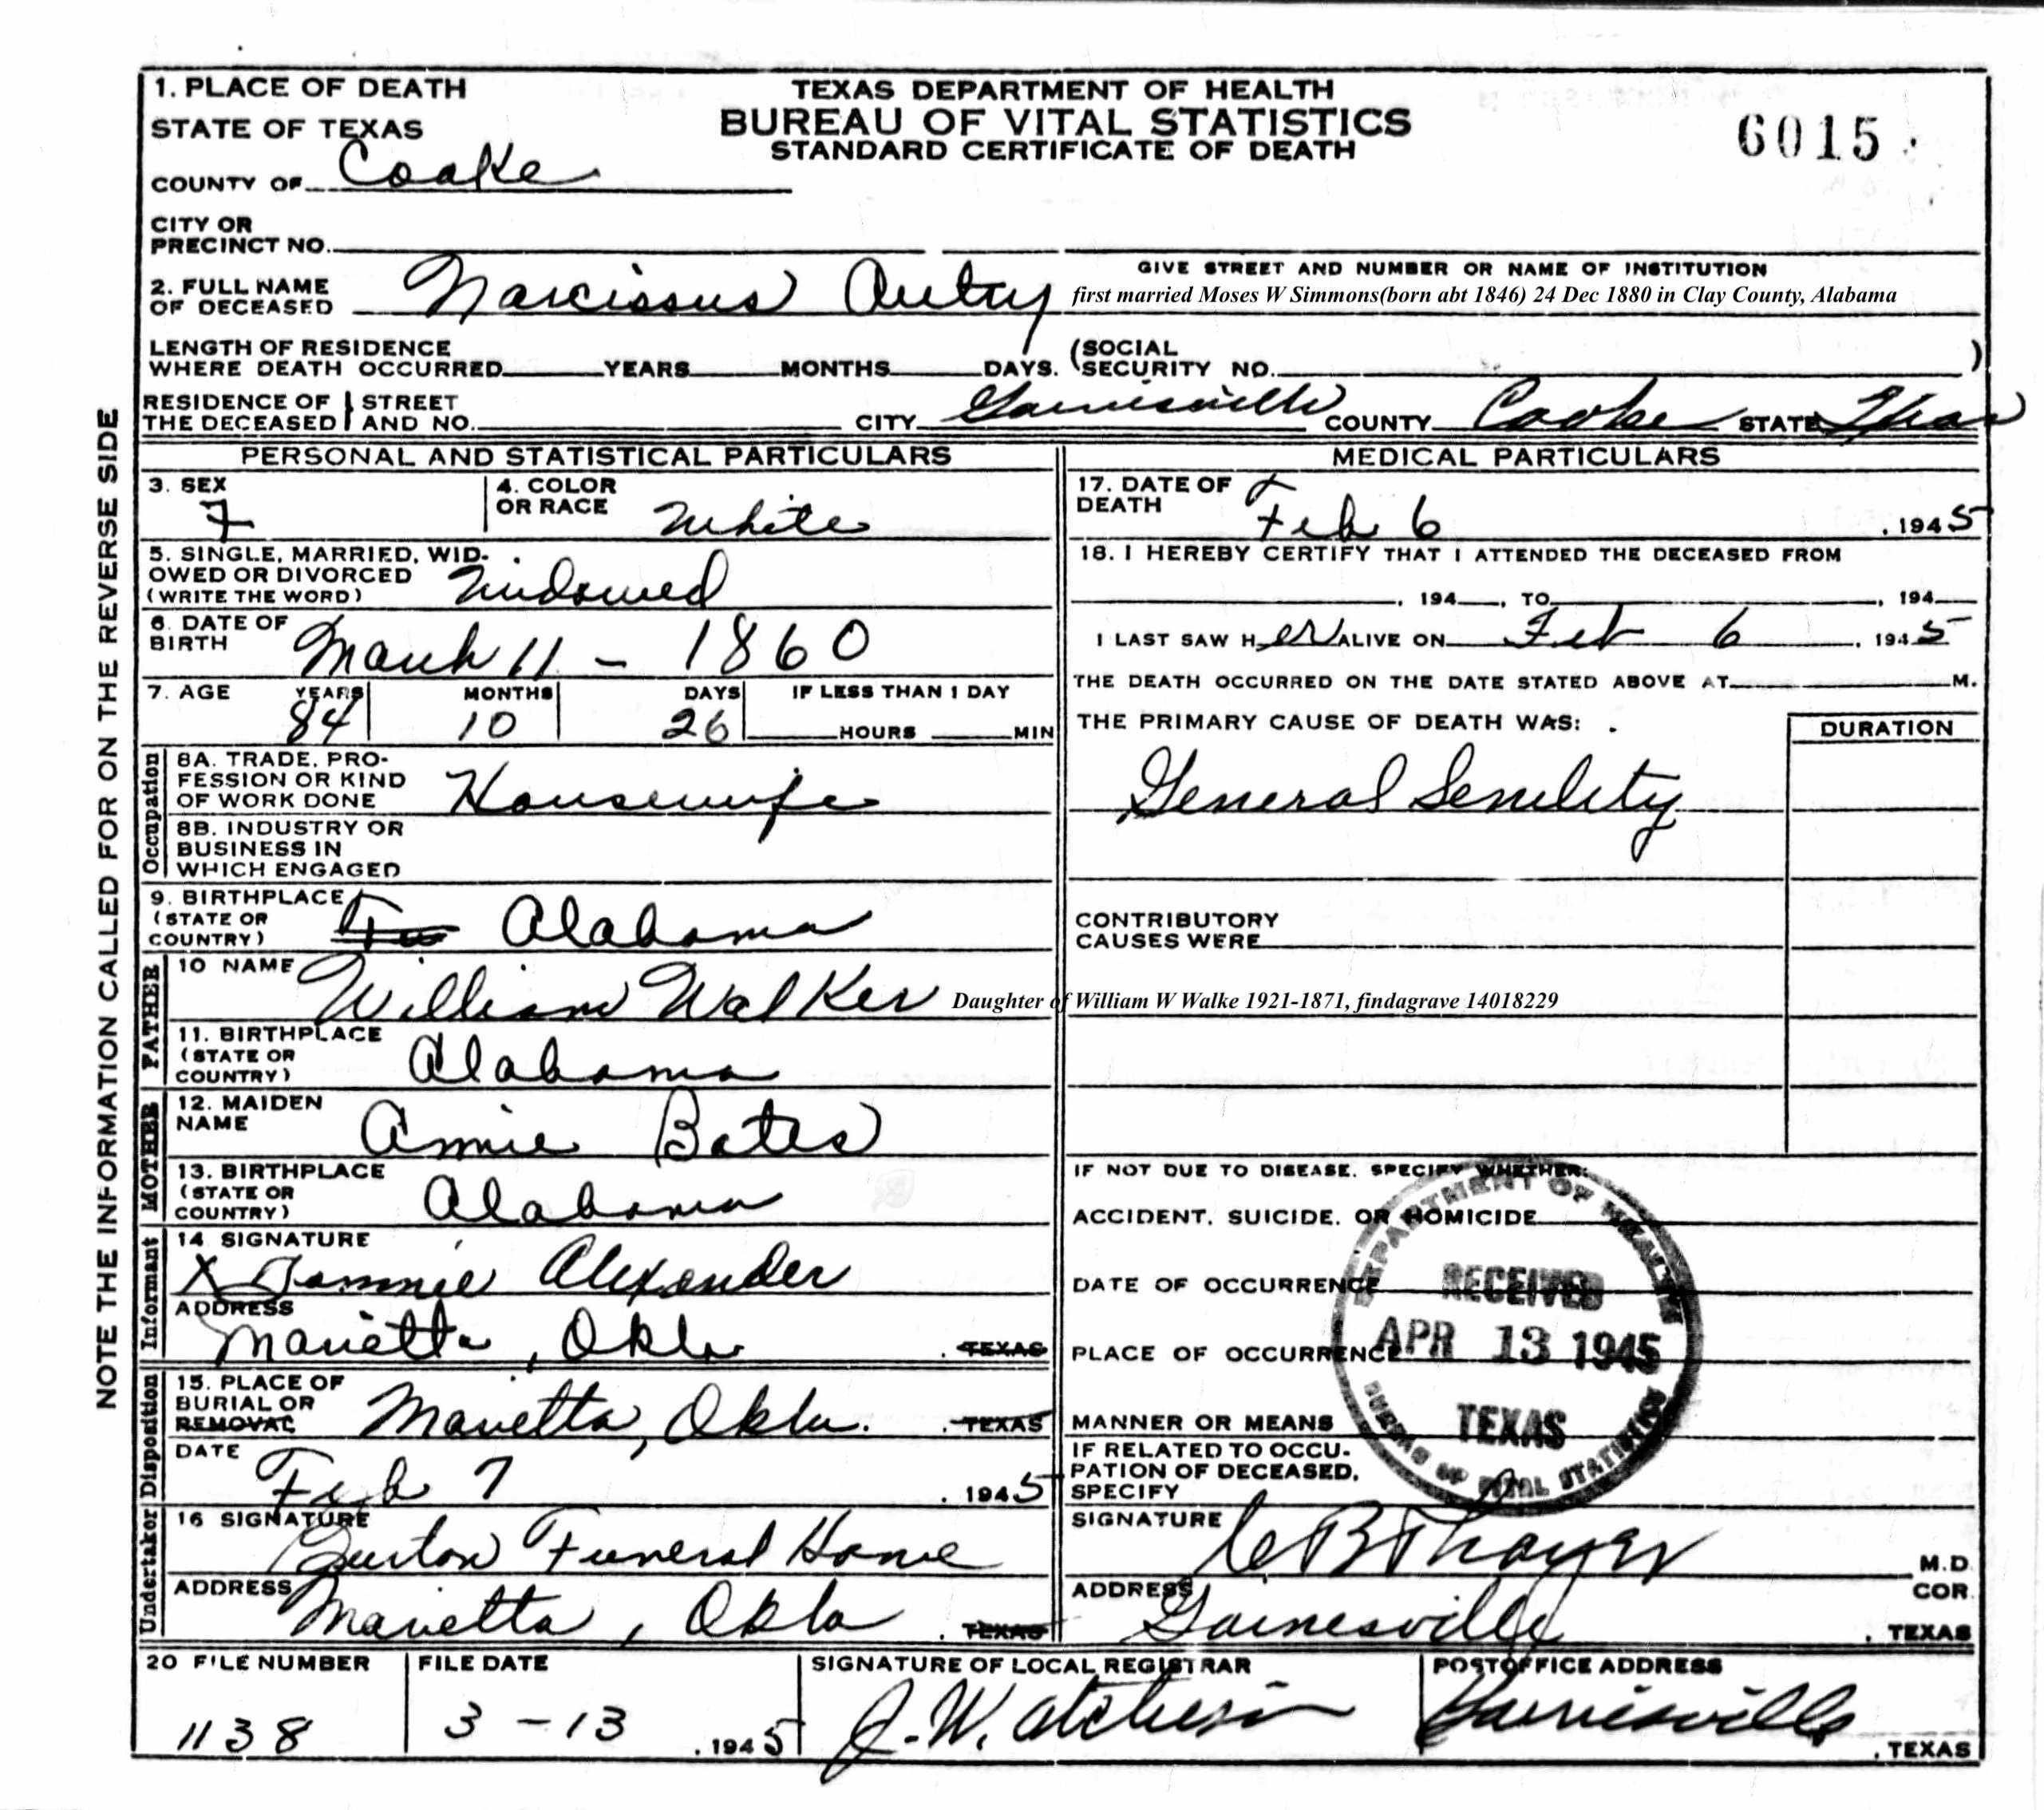 1. PLACE OF DEATH
STATE OF TEXAS
COUNTY OF Cooke
TEXAS DEPARTMENT OF HEALTH
BUREAU OF VITAL STATISTICS
STANDARD CERTIFICATE OF DEATH
6015
CITY OR
PRECINCT NO.
GIVE STREET AND NUMBER OR NAME OF INSTITUTION
2. FULL NAME
OF DECEASED Narcissus Autry first married Moses W Simmons(born abt 1846) 24 Dec 1880 in Clay County, Alabama
LENGTH OF RESIDENCE
WHERE DEATH OCCURRED YEARS MONTHS DAYS. (SOCIAL SECURITY NO. )
RESIDENCE OF THE DECEASED } STREET AND NO. CITY Gainesville COUNTY Cooke STATE Texas
NOTE THE INFORMATION CALLED FOR ON THE REVERSE SIDE
PERSONAL AND STATISTICAL PARTICULARS
3. SEX F
4. COLOR OR RACE White
5. SINGLE, MARRIED, WID-
OWED OR DIVORCED
(WRITE THE WORD) Widowed
6. DATE OF
BIRTH March 11 - 1860
7. AGE YEARS MONTHS DAYS IF LESS THAN 1 DAY
84 10 26 HOURS MIN
Occupation
8A. TRADE, PRO-
FESSION OR KIND
OF WORK DONE Housewife
8B. INDUSTRY OR
BUSINESS IN
WHICH ENGAGED
9. BIRTHPLACE
(STATE OR
COUNTRY) Alabama
FATHER
10 NAME William Walker Daughter of William W Walke 1921-1871, findagrave 14018229
11. BIRTHPLACE
(STATE OR
COUNTRY) Alabama
MOTHER
12. MAIDEN
NAME Annie Bates
13. BIRTHPLACE
(STATE OR
COUNTRY) Alabama
Informant
14 SIGNATURE
X Tommie Alexander
ADDRESS
Marietta, Okla. TEXAS
Disposition
15. PLACE OF
BURIAL OR
REMOVAL Marietta, Okla. TEXAS
DATE
Feb 7, 1945
Undertaker
16 SIGNATURE
Burton Funeral Home
ADDRESS
Marietta, Okla. TEXAS
MEDICAL PARTICULARS
17. DATE OF
DEATH Feb 6, 1945
18. I HEREBY CERTIFY THAT I ATTENDED THE DECEASED FROM
, 194 , TO , 194
I LAST SAW Her ALIVE ON Feb 6, 1945
THE DEATH OCCURRED ON THE DATE STATED ABOVE AT M.
THE PRIMARY CAUSE OF DEATH WAS: DURATION
General Senility
CONTRIBUTORY
CAUSES WERE
IF NOT DUE TO DISEASE, SPECIFY WHETHER:
ACCIDENT, SUICIDE, OR HOMICIDE
DATE OF OCCURRENCE
PLACE OF OCCURRENCE
MANNER OR MEANS
IF RELATED TO OCCU-
PATION OF DECEASED,
SPECIFY
DEPARTMENT OF HEALTH
RECEIVED
APR 13 1945
TEXAS
BUREAU OF VITAL STATISTICS
SIGNATURE C B Thayer M.D.
COR.
ADDRESS
Gainesville, TEXAS
20 FILE NUMBER
1138
FILE DATE
3-13, 1945
SIGNATURE OF LOCAL REGISTRAR
J. W. Atchison
POSTOFFICE ADDRESS
Gainesville
, TEXAS